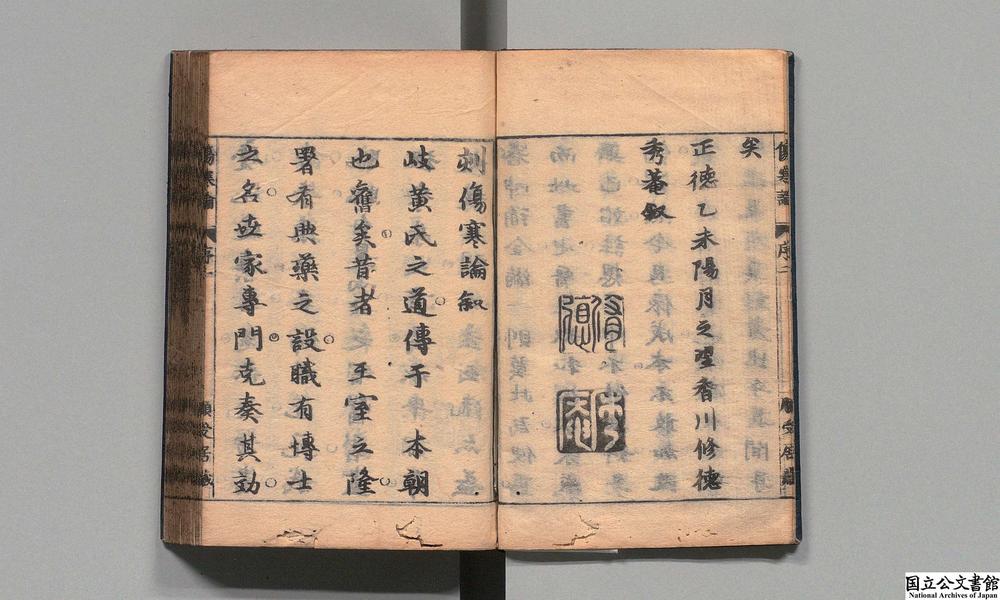 矣
正德乙未陽月之望香川修德
秀菴叙
修德
秀菴
刻傷寒論叙
岐黄氏之道傳于本朝
也舊矣昔者王室之隆
署有典藥之設職有博士
之名世家專門克奏其効
傷寒論
序二
国立公文書館
National Archives of Japan